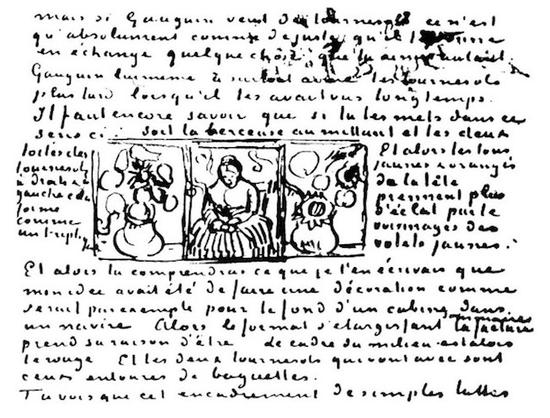 mais si Gauguin veut des tournesols ce n'est
qu'absolument comme de juste qu'il te donne
en échange quelque chose que tu aimes autant.
Gauguin lui même a surtout aimé les tournesols
plus tard lorsqu'il les avait vus longtemps.
Il faut encore savoir que si tu les mets dans ce
sens ci: soit la berceuse au milieu et les deux
toiles des
tournesols
à droite &
gauche cela
forme
comme
un triptyque
Et alors les tons
jaunes & orangés
de la tête
prennent plus
d'éclat par le
voisinages des
volets jaunes.
Et alors tu comprendras ce que je t'en écrivais que
mon idée avait été de faire une décoration comme
serait par exemple pour le fond d'un cabine dans
un navire. Alors le format s'élargissant la facture
sommaire
prend sa raison d'être. Le cadre du milieu est alors
le rouge. Et les deux tournesols qui vont avec sont
ceux entourés de baguettes.
Tu vois que cet encadrement de simples lattes